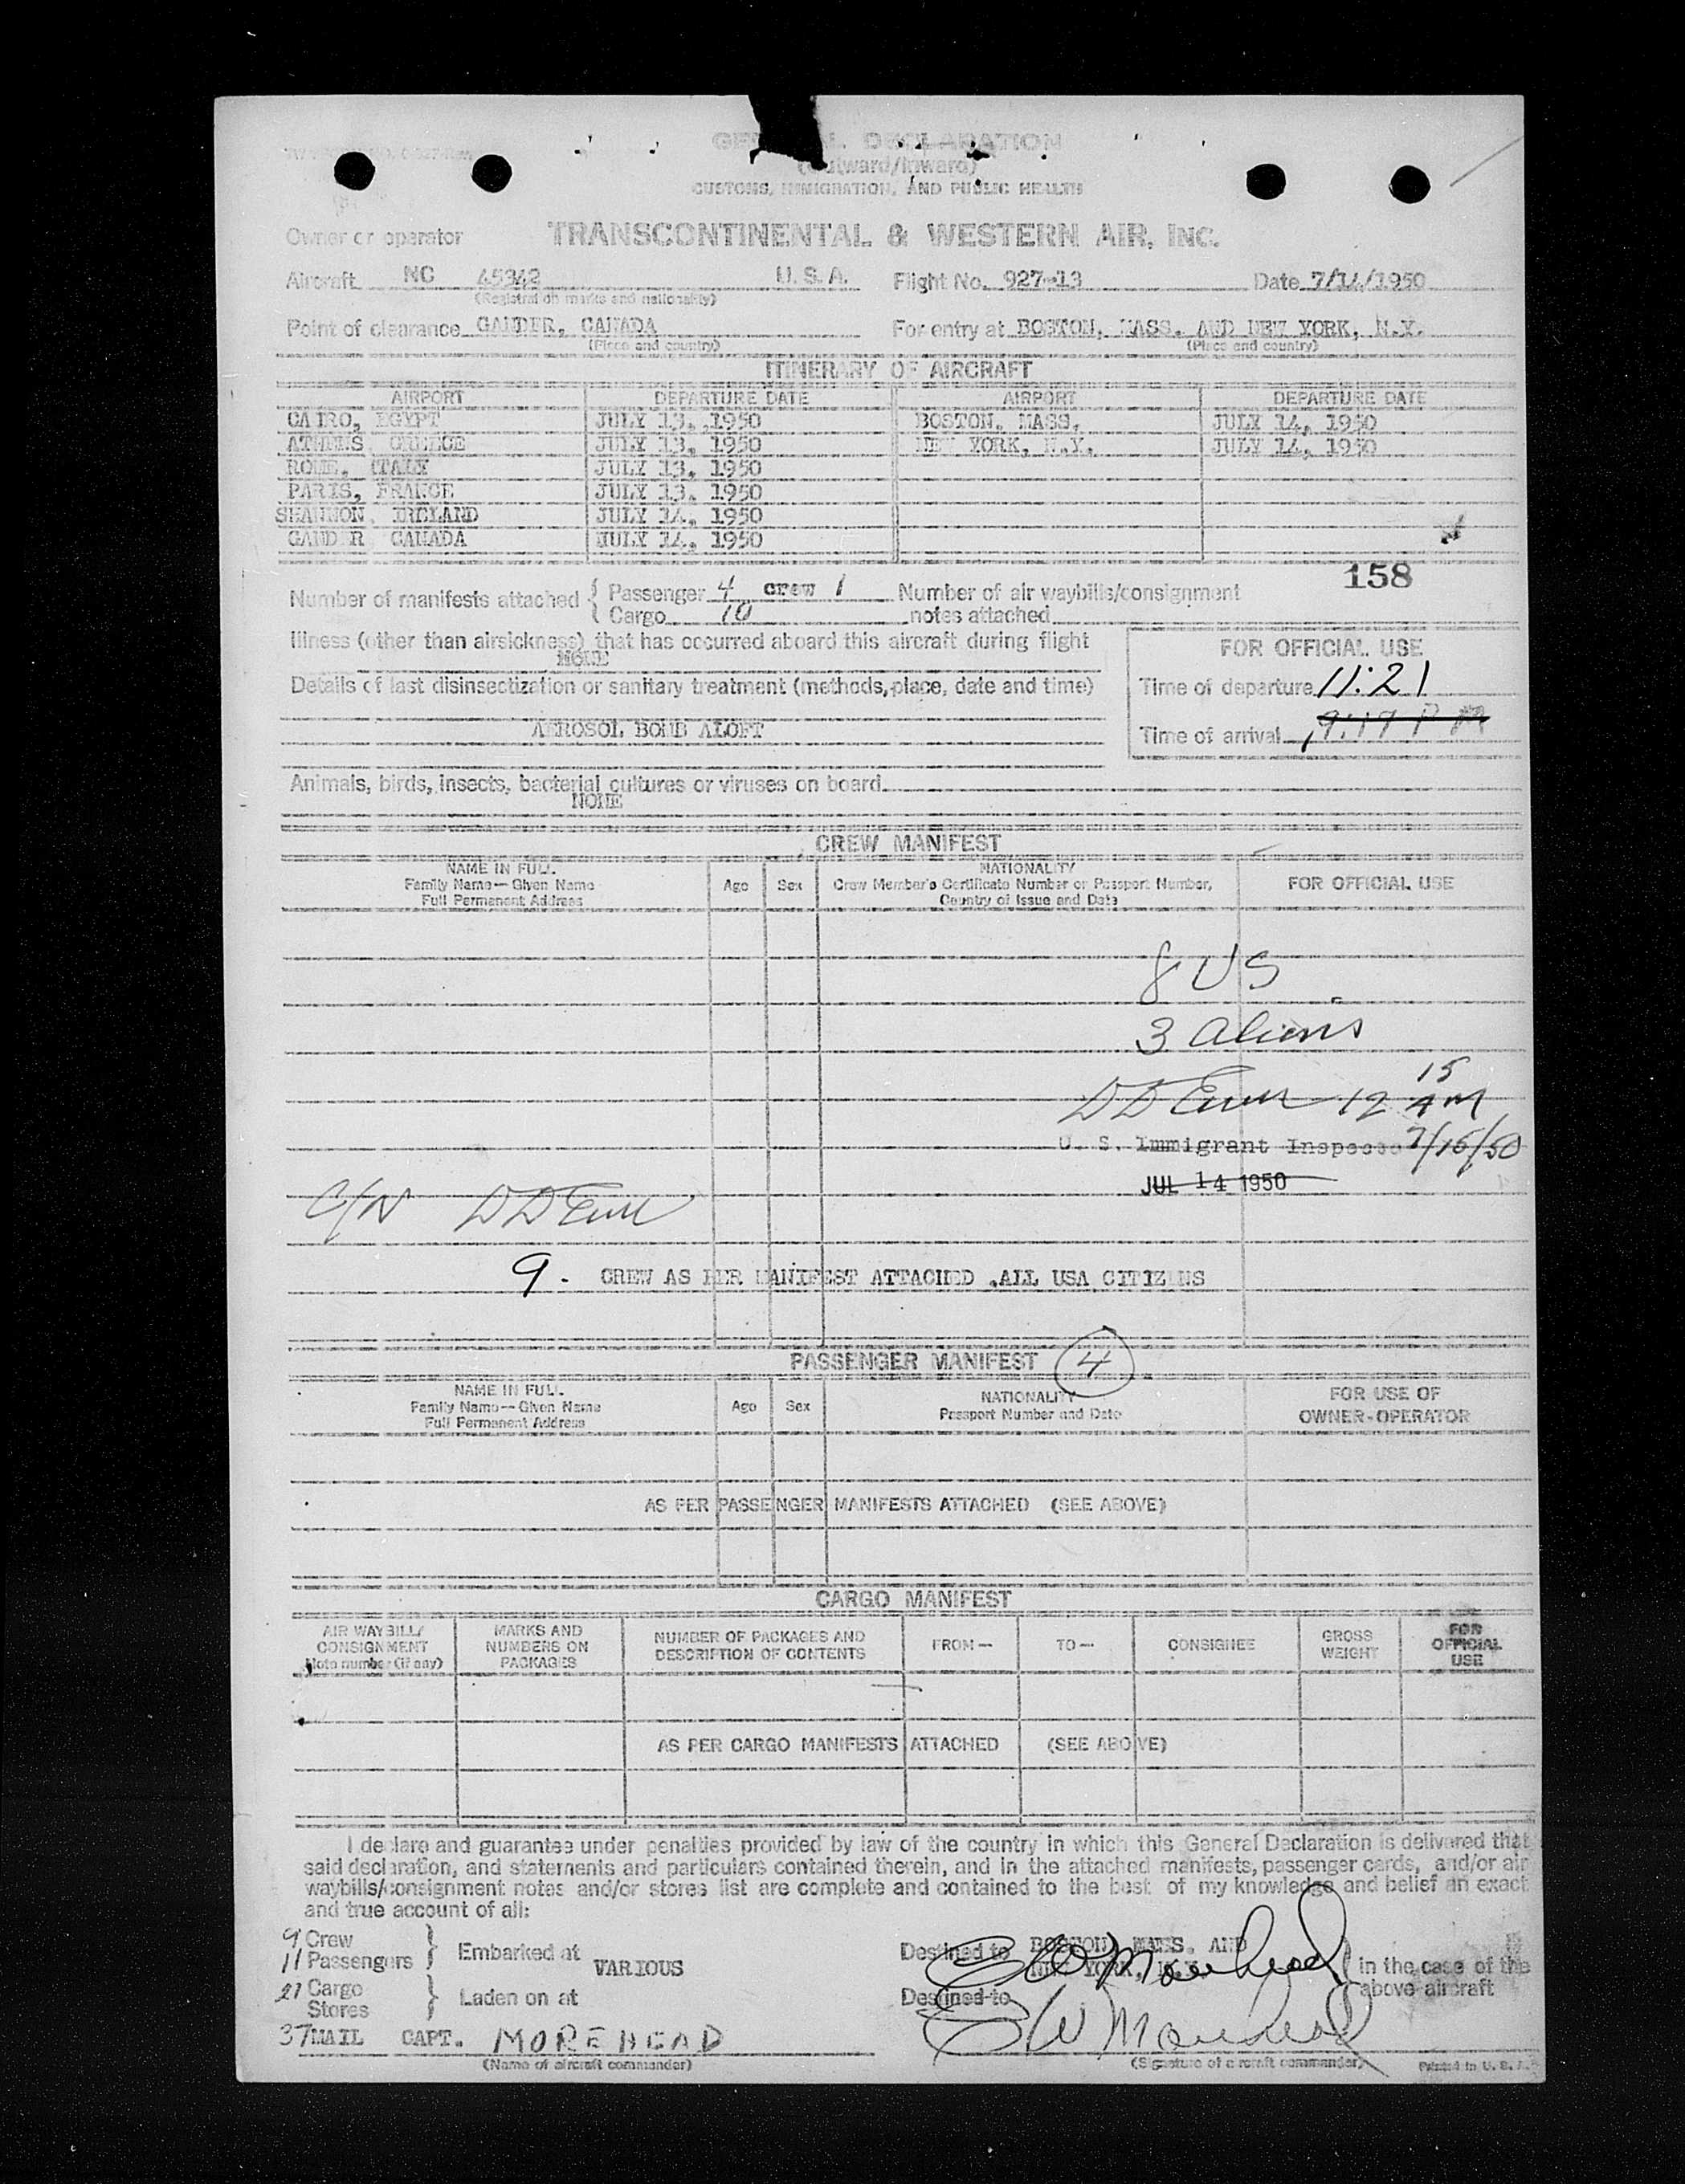 GENERAL DECLARATION
(Outward/Inward)
CUSTOMS, IMMIGRATION, AND PUBLIC HEALTH
Owner or operator TRANSCONTINENTAL & WESTERN AIR, INC.
Aircraft NC 45342 U. S. A. Flight No. 927-13 Date 7/14/1950
(Registration marks and nationality)
Point of clearance GANDER, CANADA For entry at BOSTON, MASS. AND NEW YORK, N.Y.
(Place and country) (Place and country)
ITINERARY OF AIRCRAFT
AIRPORT DEPARTURE DATE AIRPORT DEPARTURE DATE
CAIRO, EGYPT JULY 13, 1950 BOSTON, MASS. JULY 14, 1950
ATHENS GREECE JULY 13, 1950 NEW YORK, N.Y. JULY 14, 1950
ROME, ITALY JULY 13, 1950
PARIS, FRANCE JULY 13, 1950
SHANNON, IRELAND JULY 14, 1950
GANDER CANADA JULY 14, 1950
158
Number of manifests attached { Passenger 4 crew 1 Number of air waybills/consignment
Cargo 10 notes attached
Illness (other than airsickness) that has occurred aboard this aircraft during flight
NONE
FOR OFFICIAL USE
Details of last disinsectization or sanitary treatment (methods, place, date and time)
Time of departure 11:21
AEROSOL BOMB ALOFT
Time of arrival 9:17 P M
Animals, birds, insects, bacterial cultures or viruses on board
NONE
CREW MANIFEST
NAME IN FULL
Family Name—Given Name
Full Permanent Address
Age Sex
NATIONALITY
Crew Member's Certificate Number or Passport Number,
Country of Issue and Date
FOR OFFICIAL USE
8 US
3 aliens
12 15 AM
U. S. Immigrant Inspector 7/15/50
JUL 14 1950
9. CREW AS PER MANIFEST ATTACHED ,ALL USA CITIZENS
PASSENGER MANIFEST 4
NAME IN FULL
Family Name—Given Name
Full Permanent Address
Age Sex
NATIONALITY
Passport Number and Date
FOR USE OF
OWNER-OPERATOR
AS PER PASSENGER MANIFESTS ATTACHED (SEE ABOVE)
CARGO MANIFEST
AIR WAYBILL/
CONSIGNMENT
Note number (if any)
MARKS AND
NUMBERS ON
PACKAGES
NUMBER OF PACKAGES AND
DESCRIPTION OF CONTENTS
FROM—
TO—
CONSIGNEE
GROSS
WEIGHT
FOR
OFFICIAL
USE
AS PER CARGO MANIFESTS ATTACHED (SEE ABOVE)
I declare and guarantee under penalties provided by law of the country in which this General Declaration is delivered that
said declaration, and statements and particulars contained therein, and in the attached manifests, passenger cards, and/or air
waybills/consignment notes and/or stores list are complete and contained to the best of my knowledge and belief an exact
and true account of all:
9 Crew
11 Passengers } Embarked at VARIOUS
Destined to BOSTON, MASS. AND
NEW YORK, N.Y.
E W Morehead
in the case of the
above aircraft
21 Cargo
Stores } Laden on at
Destined to
37 MAIL CAPT. MOREHEAD
E W Morehead
(Name of aircraft commander) (Signature of aircraft commander) Printed in U. S. A.